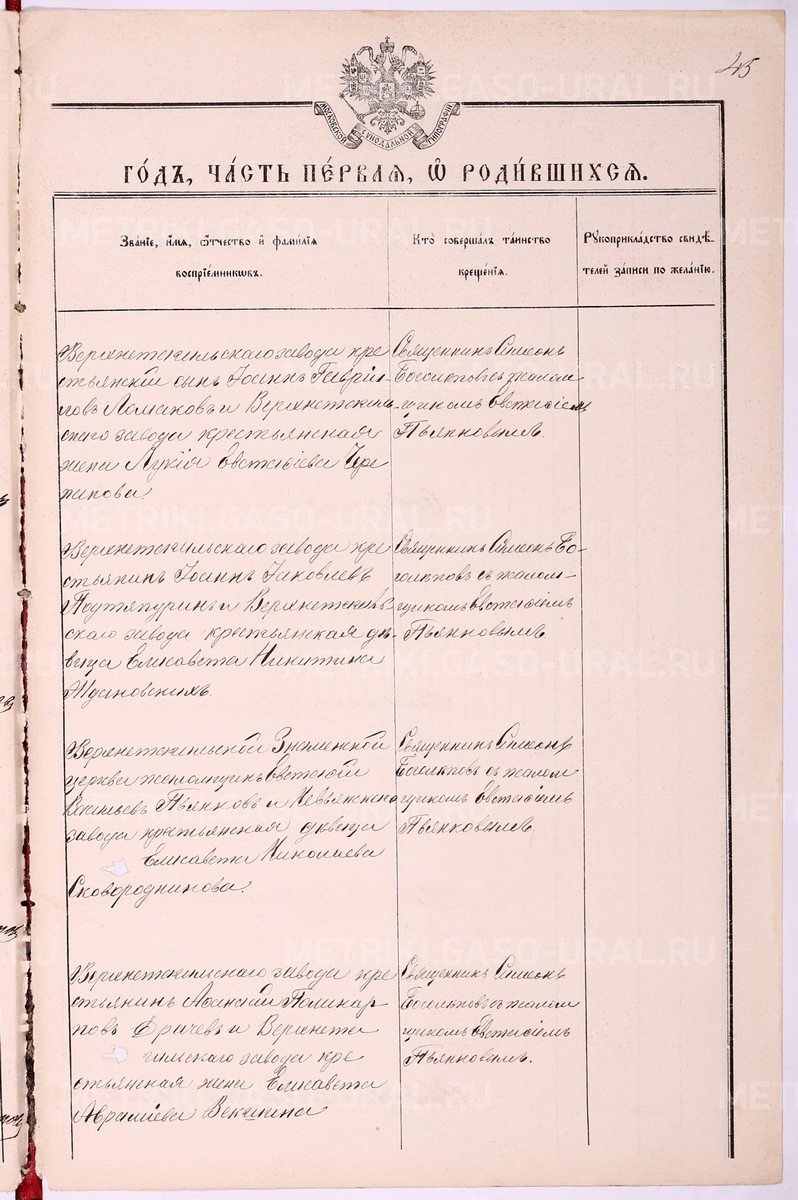 45
МОСКОВСКОЙ СѴНОДАЛЬНОЙ ТИПОГРАФІИ
ГО́ДЪ, ЧА́СТЬ ПЕ́РВАЯ, Ѽ РОДИ́ВШИХСЯ.
Зва́нїе, и҆́мя, ѻ҆́тчество и҆ фами́лїя
воспрїе́мникѡвъ.
Кто̀ соверша́лъ та́инство
креще́нїя.
Рꙋкоприкла́дство свидѣ́-
телей за́писи по жела́нїю.
Верхнетагильскаго завода кре
стьянскій сынъ Іоаннъ Гавріи-
ловъ Ломаковъ и Верхнетагиль
скаго завода крестьянская
жена Лукія Евстафіева Чере
панова.
Священникъ Симеонъ
Богомѣловъ съ псалом-
щикомъ Евстафіемъ
Пьянковымъ.
Верхнетагильскаго завода кре
стьянинъ Іоаннъ Іаковлевъ
и Верхнетагиль
скаго завода крестьянская дѣ-
вица Елисавета Никитина
Ждановскихъ.
Священникъ Симеонъ
съ псалом-
щикомъ Евстафіемъ
Пьянковымъ
Верхнетагильской Знаменской
церкви псаломщикъ Евстафій
Пьянковъ и Невьянскаго
завода крестьянская дѣвица
Елисавета Николаева
Сковородникова.
Священникъ Симеонъ
съ псалом
щикомъ Евстафіемъ
Пьянковымъ
Верхнетагильскаго завода кре
стьянинъ Поликар
повъ Драчевъ и Верхнета
гильскаго завода кре
стьянская жена Елисавета
Авраміева Векшина
Священникъ Симеонъ
съ псалом
щикомъ Евстафіемъ
Пьянковымъ.
METRIKI.GASO-URAL.RU